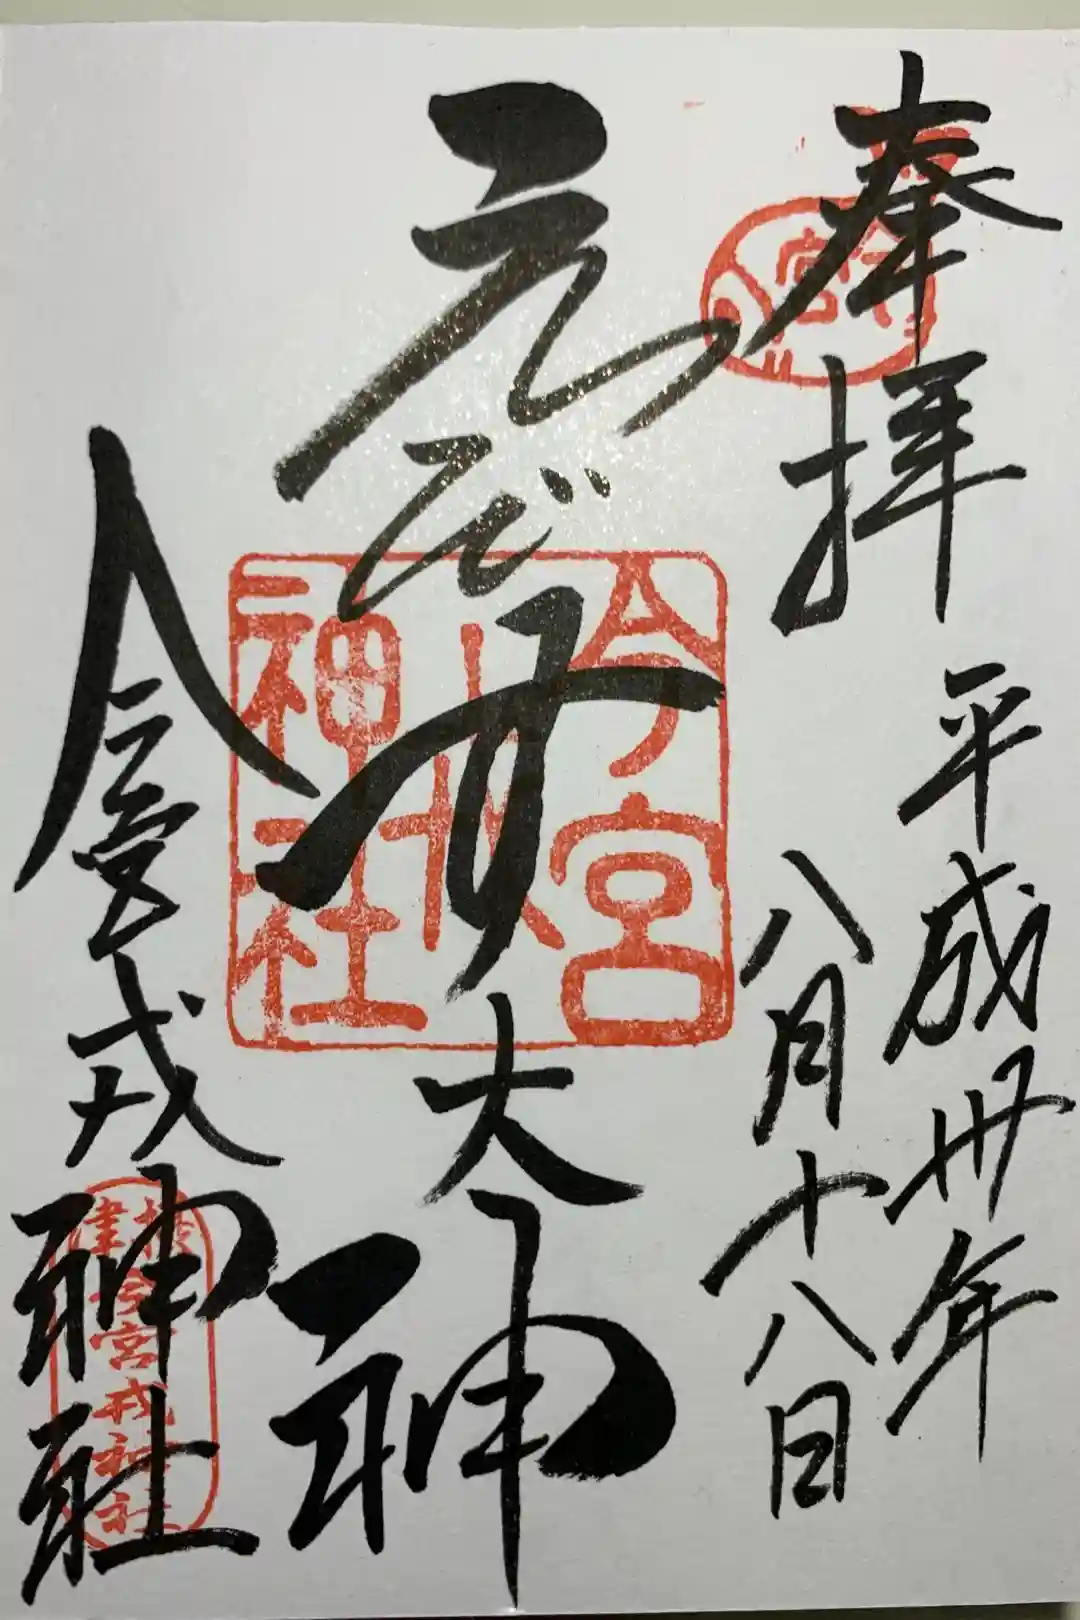 奉拝
平成卅年
八月十八日
ゑびす大神
今宮戎神社
今宮戎神社
今宮戎神社